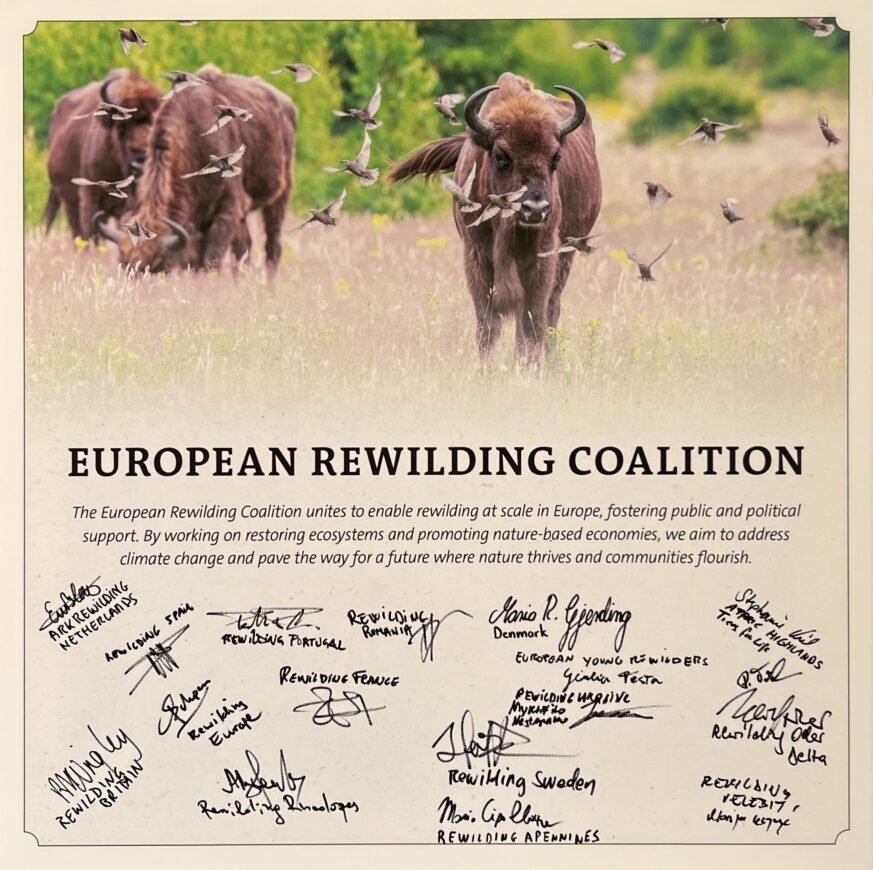 EUROPEAN REWILDING COALITION
The European Rewilding Coalition unites to enable rewilding at scale in Europe, fostering public and political
support. By working on restoring ecosystems and promoting nature-based economies, we aim to address
climate change and pave the way for a future where nature thrives and communities flourish.
ARK REWILDING
NETHERLANDS
REWILDING SPAIN
REWILDING PORTUGAL
REWILDING
ROMANIA
Maria R. Gjerding
Denmark
EUROPEAN YOUNG REWILDERS
Giulia Testa
Stephanie
HIGHLANDS
Trees for Life
REWILDING FRANCE
Rewilding
Europe
REWILDING UKRAINE
MYKHAILO
Rewilding Oder
Delta
REWILDING
BRITAIN
Rewilding Rhodopes
Rewilding Sweden
REWILDING
VELEBIT,
Mario Cipollone
REWILDING APENNINES